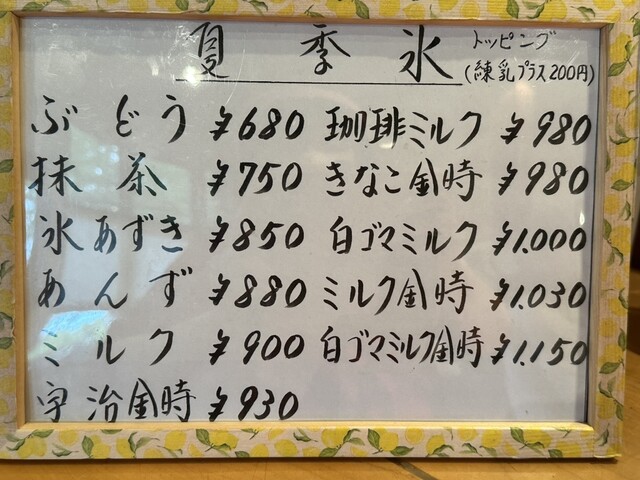 夏季氷
トッピング
(練乳プラス200円)
ぶどう ¥680
抹茶 ¥750
氷あずき ¥850
あんず ¥880
ミルク ¥900
宇治金時 ¥930
珈琲ミルク ¥980
きなこ金時 ¥980
白ゴマミルク ¥1.000
ミルク金時 ¥1.030
白ゴマミルク金時 ¥1.150